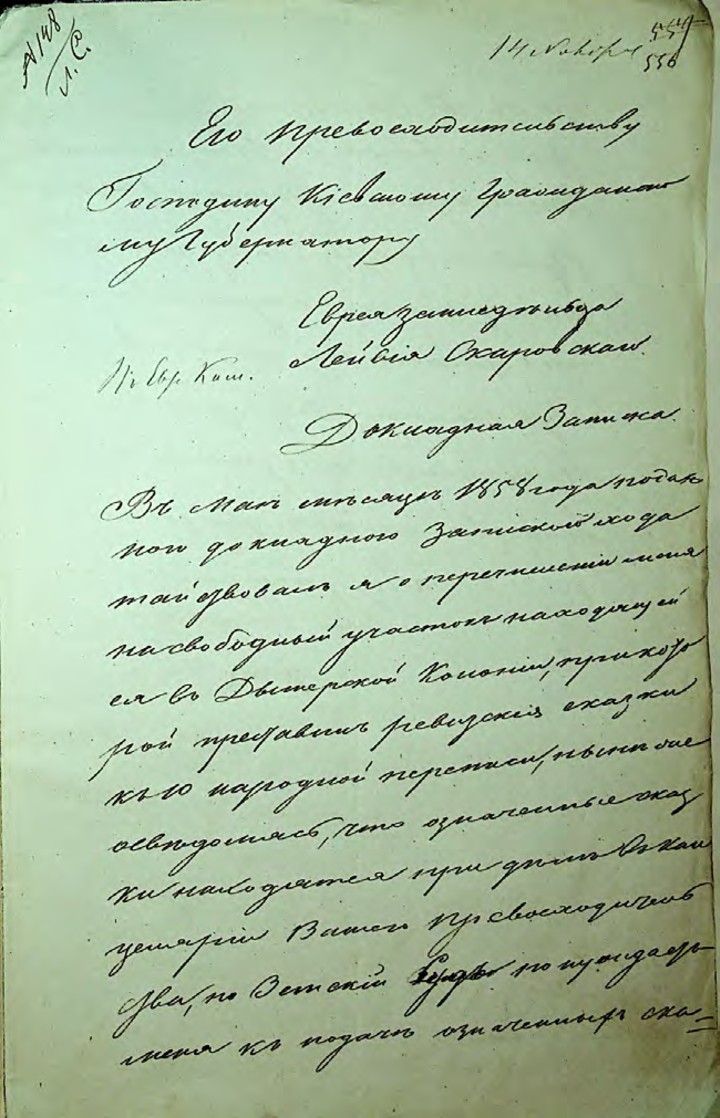 № 148
Л. С.
14 Ноября
557
556
Его Превосходительству
Господину Кіевскому Гражданско
му Губернатору
Еврея земледѣльца
Лейбія Скаровскаго
Докладная Записка.
Въ маѣ мѣсяцѣ 1858 года подан
ною докладною Запискою хода
тайствовалъ я о перечисленіи меня
на свободный участокъ находящей
ся въ Дымерской Колоніи, при кото
рой представилъ ревизскія сказки
къ 10 народной переписи, нынѣ же
освѣдомясь, что означенные сказ
ки находятся при дѣлѣ въ Кан
целяріи Вашего Превосходительс
тва, но Земскій Судъ понуждаетъ
меня къ подачѣ означенныхъ ска=